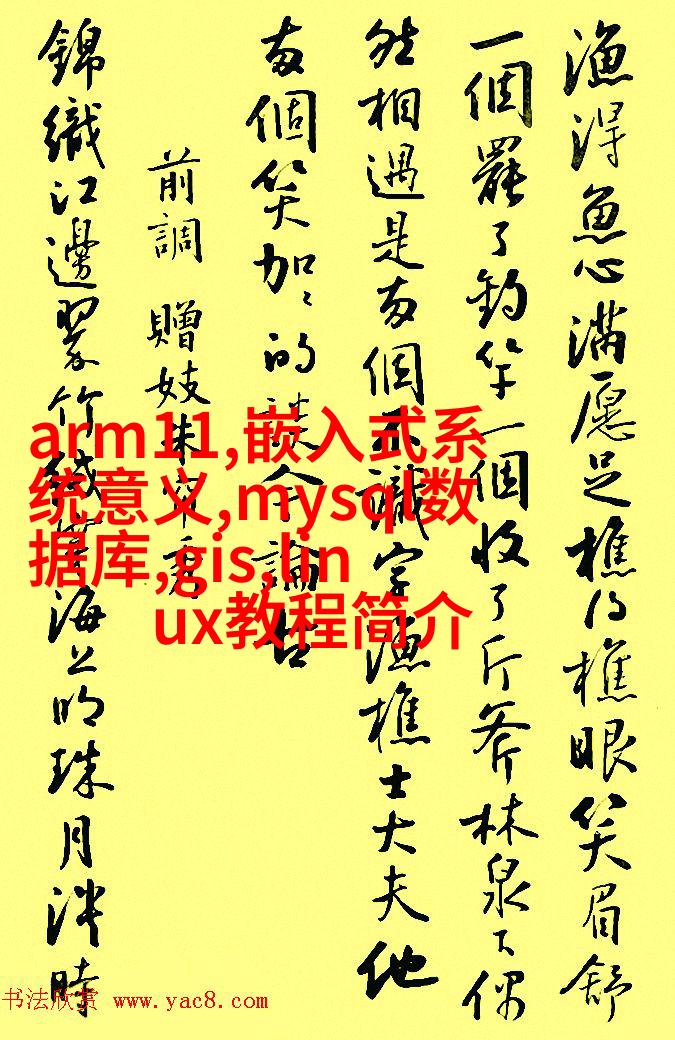 漁得魚心滿愿足樵得樵眼笑眉舒
一個罷了釣竿一個收了斤斧林泉下偶
然相遇是兩個不識字漁樵士大夫他
兩個笑加〻的談今論古
前調 贈妓朱帘秀
錦織江邊翠竹絨穿海上明珠月淡時
arm11,嵌入式系
统意义,mysql数
据库,gis,lin
ux教程简介
书法欣赏 www.yac8.com